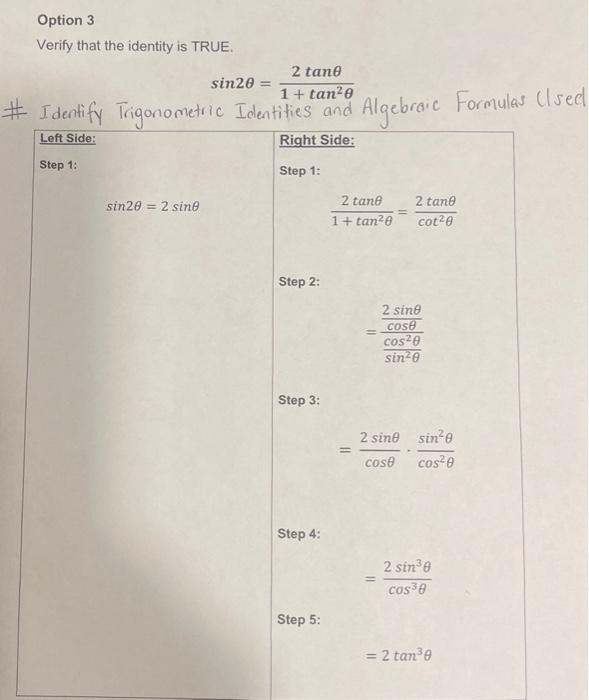 Option 3
Verify that the identity is TRUE.
sin2θ = 2 tanθ / 1 + tan²θ
# Identify Trigonometric Identities and Algebraic Formulas Used
Left Side:
Step 1:
sin2θ = 2 sinθ
Right Side:
Step 1:
2 tanθ / 1 + tan²θ = 2 tanθ / cot²θ
Step 2:
= 2 sinθ / cosθ / cos²θ / sin²θ
Step 3:
= 2 sinθ / cosθ · sin²θ / cos²θ
Step 4:
= 2 sin³θ / cos³θ
Step 5:
= 2 tan³θ